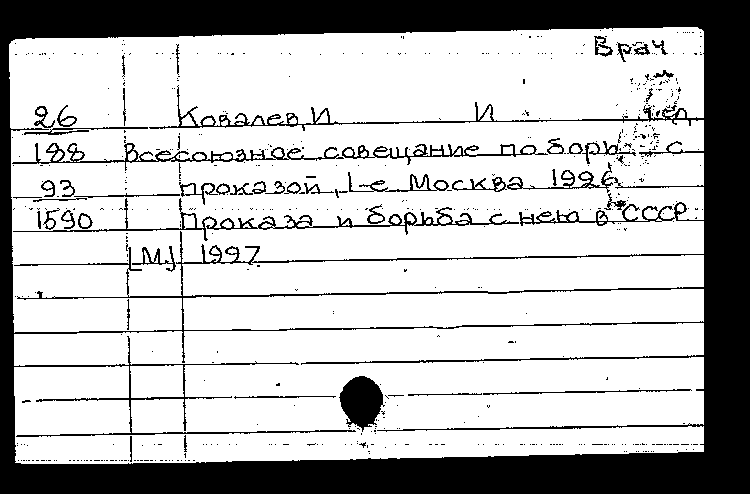 Врач
26 Ковалев, И. И ред.
188 Всесоюзное совещание по борьбе с
93 проказой, 1-е Москва. 1926
1590 Проказа и борьба с нею в СССР.
[М.] 1927